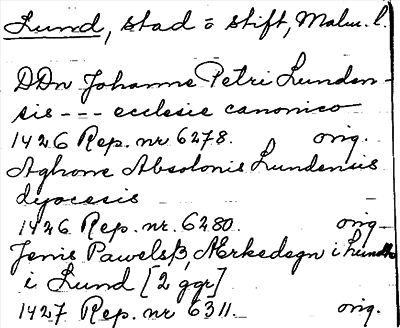 Lund, stad o stift, Malm. l.
DDn Johanne Petri Lunden-
sis --- ecclesie canonico
1426 Rep. nr 6278. orig.
Aghone Absolonis Lundensis
dyocesis - -
1426 Rep. nr. 6280. orig-
Jenis Pawelsß, Ærkedegn i Lund
i Lund [2 ggr]
1427 Rep. nr 6311. orig.